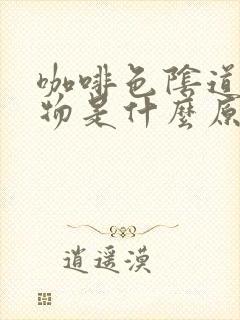 咖啡色陰道
物是什麼原
逍遥漠